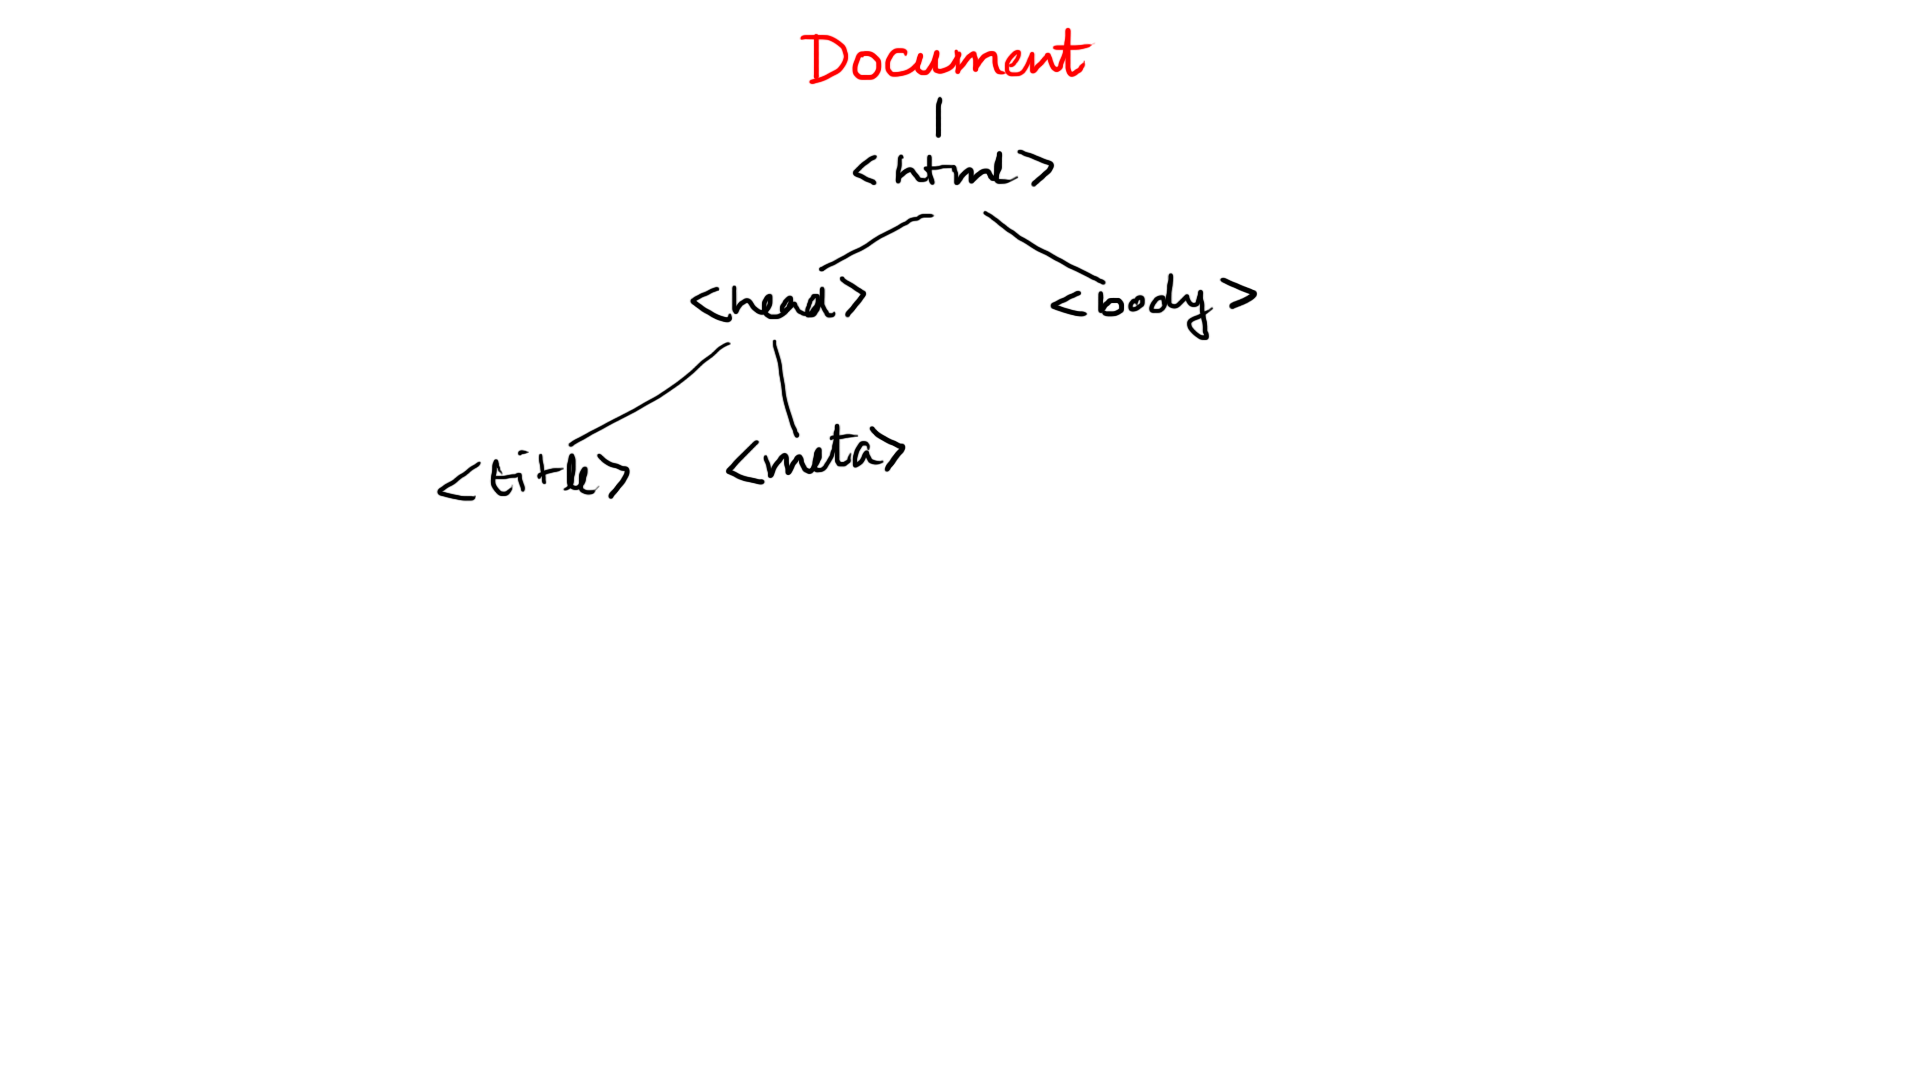 Document
<html>
<head> <body>
<title> <meta>